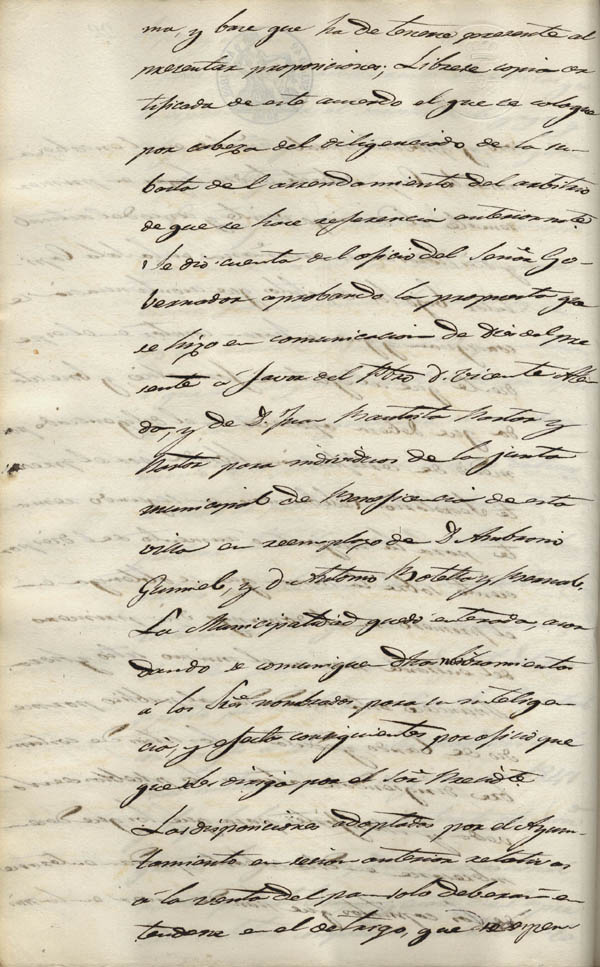 ma, y base que ha de tenerse presente al
presentar proposiciones; Librese copia cer
tificada de este acuerdo el que se coloque
por cabeza del diligenciado de la su-
basta del arrendamiento del arbitrio
de que se hace referencia anteriormte.
Se dio cuenta del oficio del Señor Go-
bernador aprobando la propuesta que
se hizo en comunicacion de dies del pre
sente a favor del Pbro. D. Vicente
do, y de D. Juan Bautista Pastor y
Pastor para individuos de la Junta
municipal de Beneficencia de esta
villa en reemplazo de D. Ambrosio
y D. Antonio Botella y
La Municipalidad quedó enterada, acor
dando se comunique dhos nombramientos
a los Sres nombrados para su intelige
cia, y efectos consiguientes por oficio que
que se les dirija por el Sor. Presidte.
Las disposiciones adoptadas por el Ayun-
tamiento en sesion anterior relativas
a la venta del pan solo deberan en
tenderse en el de trigo, que se espen